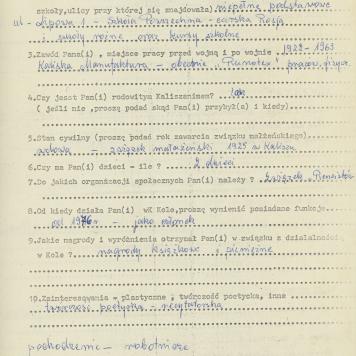 szkoły, ulicy przy której się znajdowała) niepełne podstawowe
ul - Lipowa 1. - Szkoła Powszechna - carska Rosja
i szkoły rożne oraz kursy szkolne
3. Zawód Pana(i) , miejsce pracy przed wojną i po wojnie . 1922 - 1963
Kaliska Manufaktura - obecnie "Runotex" pracow. fizycz.
4. Czy jesst Pan(i) rodowitym Kaliszaninem? tak
( jeśli nie ,proszę podać skąd Pan(i) przybył(a) i kiedy)
5. Stan cywilny (proszę podać rok zawarcia związku małżeńskiego)
wdowa - związek małżeński 1925 w Kaliszu
6. Czy ma Pan(i) dzieci - ile ? 2 dzieci
7. Do jakich organizacji społecznych Pan(i) należy ? Związek Rencistów
8. Od kiedy działa Pan(i) wK Kole, proszę wymienić posiadane funkcje
od 1976 r - jako członek
9. Jakie nagrody i wyróżnienia otrzymał Pan(i) w związku z działalnością
w Kole ? nagrody książkowe i pieniężne
10. Zainteresowania - plastyczne , twórczość poetycka, inne
twórczość poetycka - recytatorska
pochodzenie - robotnicze